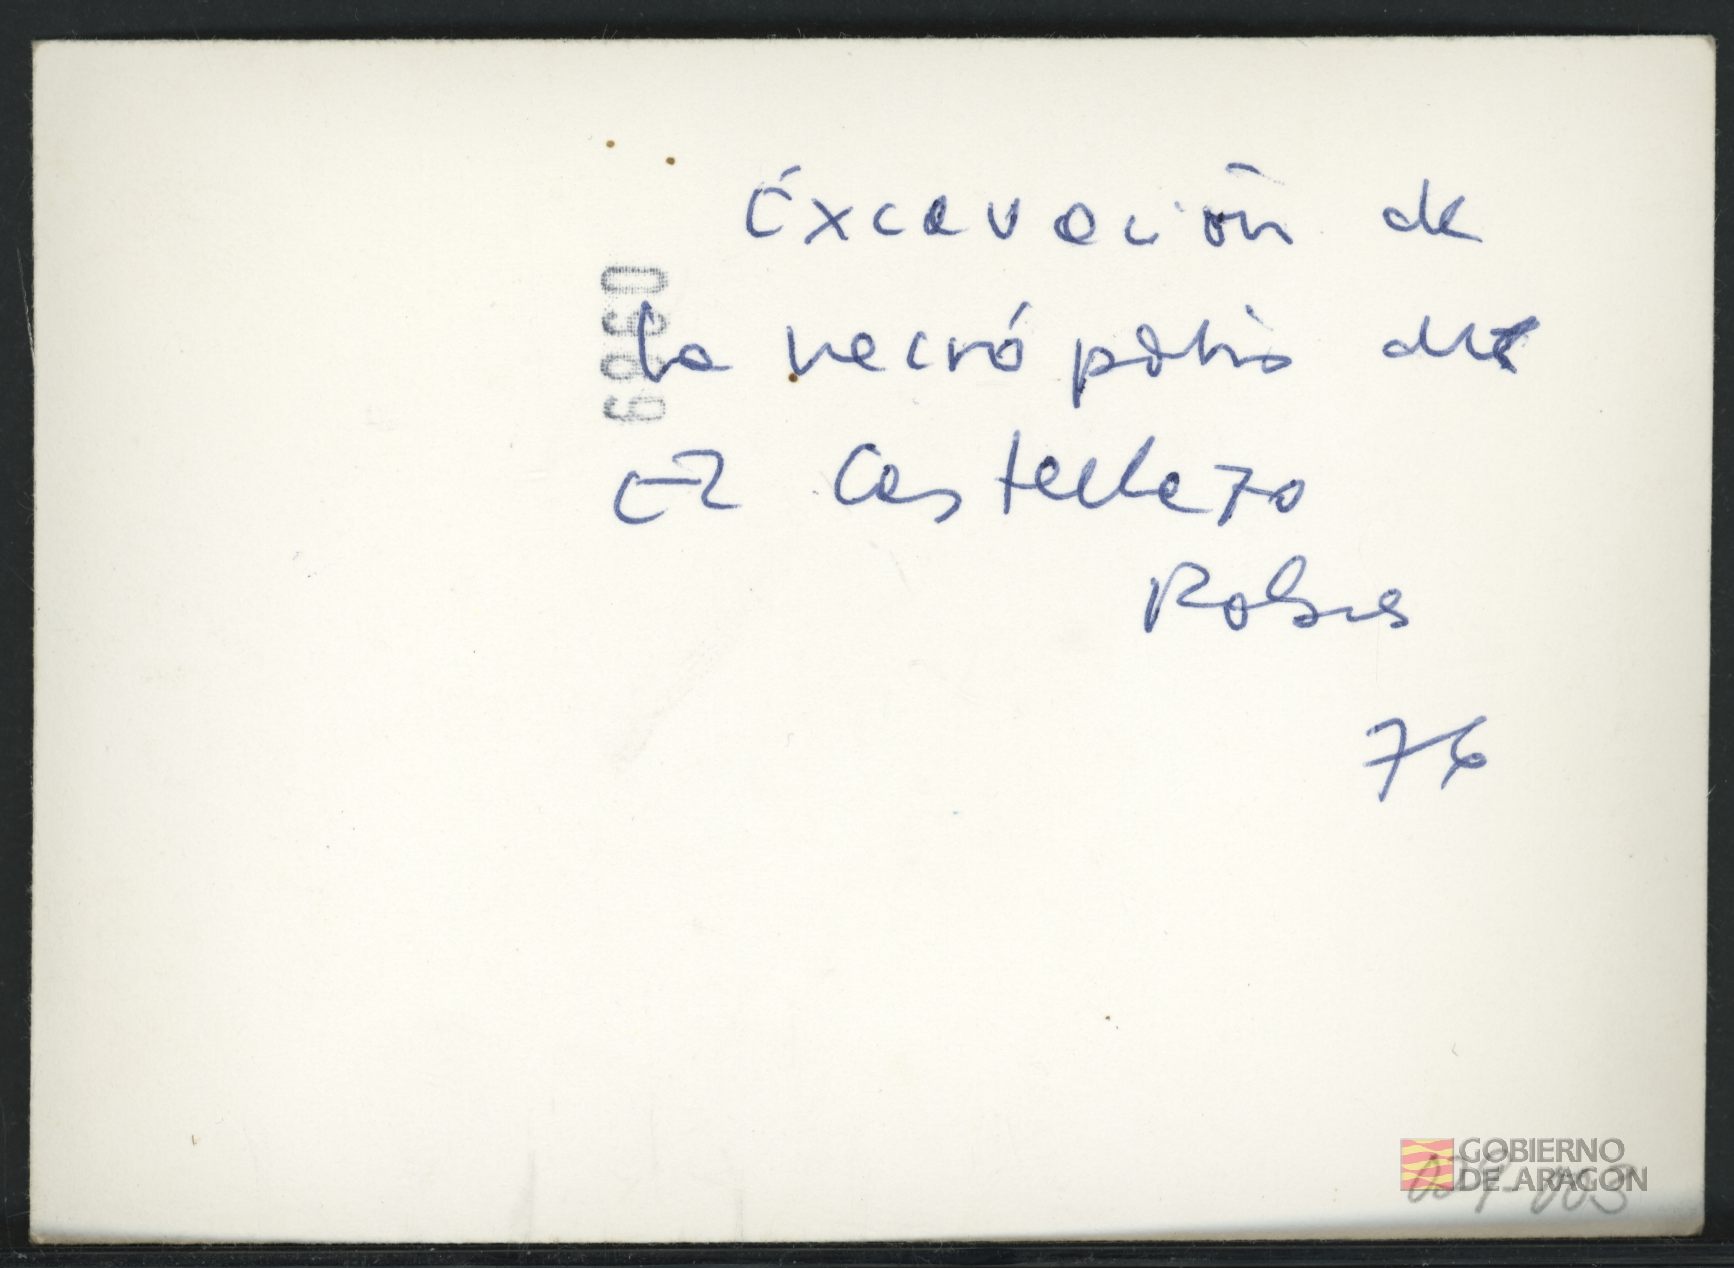 Excavación de
la necrópolis de
El Castellazo
Robres
76
GOBIERNO
DE ARAGON